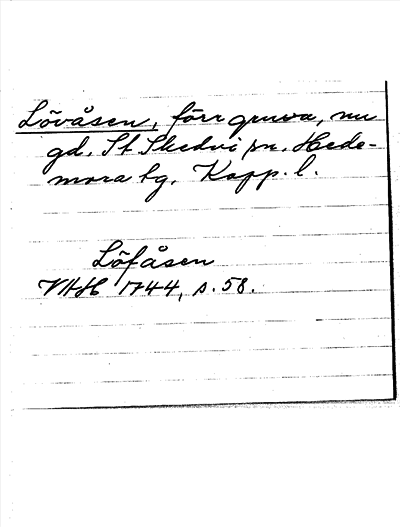 Lövåsen, förr gruva, nu
gd. St Skedvi sn. Hede-
mora tg. Kopp. l.
Löfåsen
VAH 1744, s. 58.